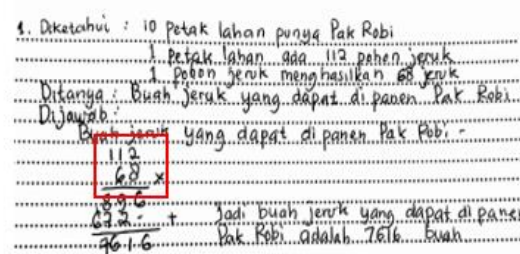 1. Diketahui : 10 Petak lahan punya Pak Robi
1 Petak lahan ada 112 pohon jeruk
1 pohon jeruk menghasilkan 68 jeruk
Ditanya : Buah jeruk yang dapat di panen Pak Robi
Dijawab :
Buah jeruk yang dapat di panen Pak Robi -
112
68 x
896
672 - +
7616
Jadi buah jeruk yang dapat di panen
Pak Robi adalah 7616 buah